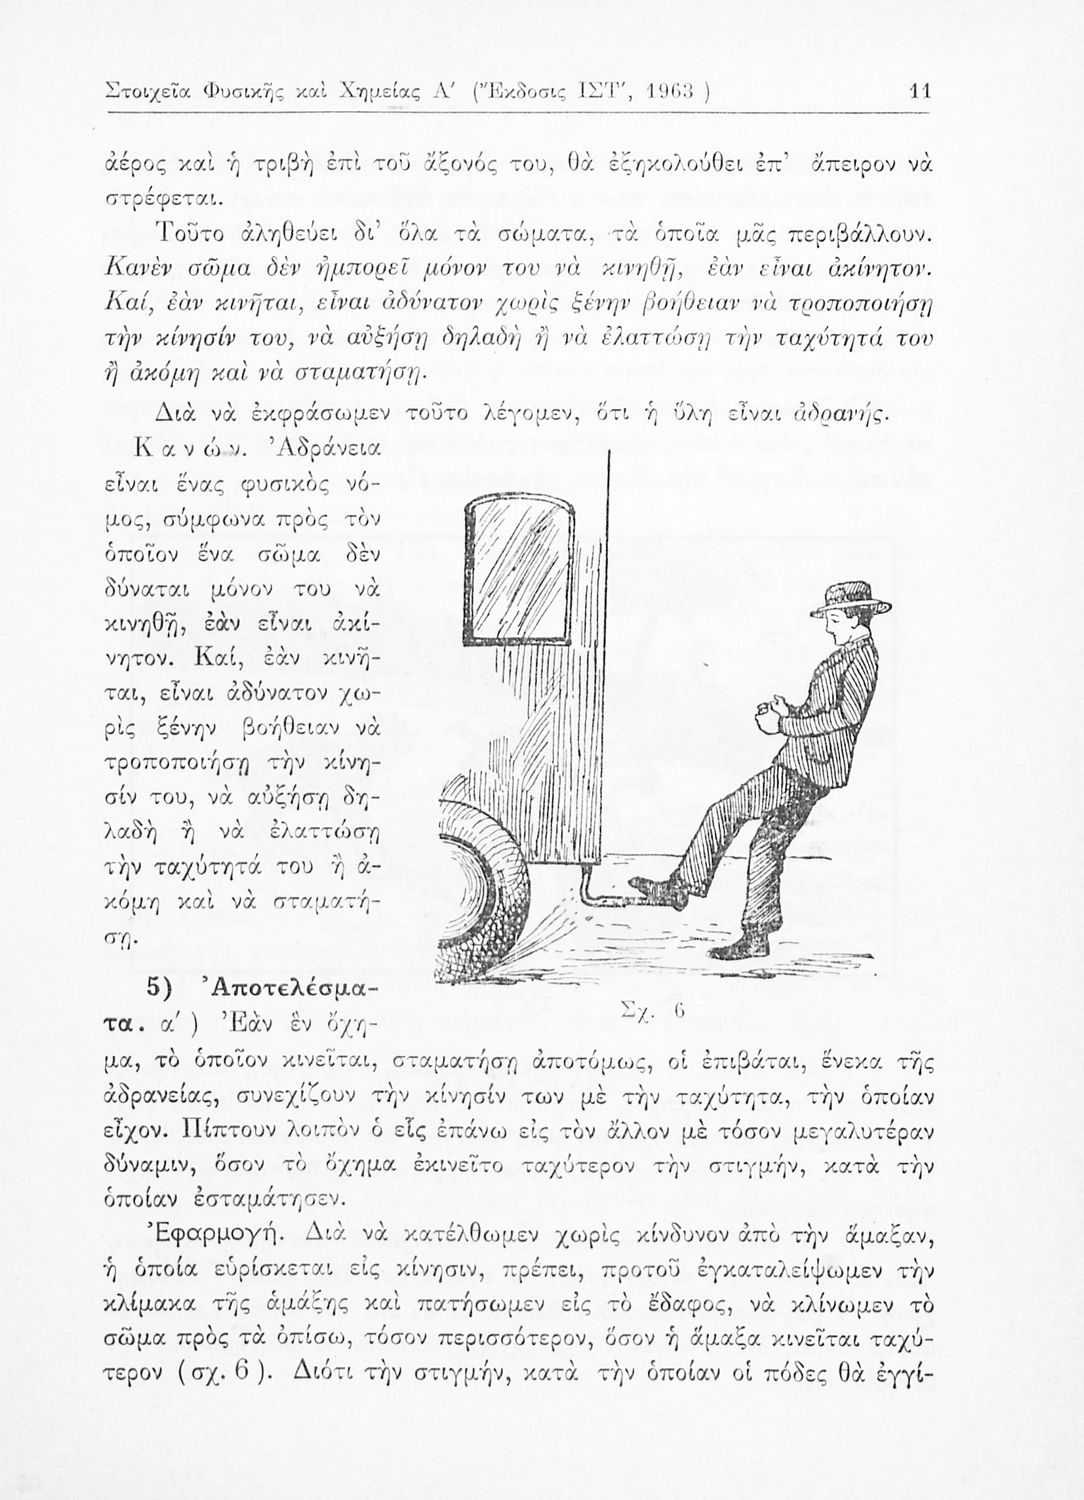 Στοιχεῖα Φυσικῆς καὶ Χημείας Α′ (Ἔκδοσις ΙΣΤ′, 1963 ) 11
ἀέρος καὶ ἡ τριβὴ ἐπὶ τοῦ ἄξονός του, θὰ ἐξηκολούθει ἐπ’ ἄπειρον νὰ
στρέφεται.
Τοῦτο ἀληθεύει δι’ ὅλα τὰ σώματα, τὰ ὁποῖα μᾶς περιβάλλουν.
Κανὲν σῶμα δὲν ἠμπορεῖ μόνον του νὰ κινηθῇ, ἐὰν εἶναι ἀκίνητον.
Καί, ἐὰν κινῆται, εἶναι ἀδύνατον χωρὶς ξένην βοήθειαν νὰ τροποποιήσῃ
τὴν κίνησίν του, νὰ αὐξήσῃ δηλαδὴ ἢ νὰ ἐλαττώσῃ τὴν ταχύτητά του
ἢ ἀκόμη καὶ νὰ σταματήσῃ.
Διὰ νὰ ἐκφράσωμεν τοῦτο λέγομεν, ὅτι ἡ ὕλη εἶναι ἀδρανής.
Κανών. Ἀδράνεια
εἶναι ἕνας φυσικὸς νό-
μος, σύμφωνα πρὸς τὸν
ὁποῖον ἕνα σῶμα δὲν
δύναται μόνον του νὰ
κινηθῇ, ἐὰν εἶναι ἀκί-
νητον. Καί, ἐὰν κινῆ-
ται, εἶναι ἀδύνατον χω-
ρὶς ξένην βοήθειαν νὰ
τροποποιήσῃ τὴν κίνη-
σίν του, νὰ αὐξήσῃ δη-
λαδὴ ἢ νὰ ἐλαττώσῃ
τὴν ταχύτητά του ἢ ἀ-
κόμη καὶ νὰ σταματή-
σῃ.
5) Ἀποτελέσμα-
τα. α′ ) Ἐὰν ἓν ὄχη-
Σχ. 6
μα, τὸ ὁποῖον κινεῖται, σταματήσῃ ἀποτόμως, οἱ ἐπιβάται, ἕνεκα τῆς
ἀδρανείας, συνεχίζουν τὴν κίνησίν των μὲ τὴν ταχύτητα, τὴν ὁποίαν
εἶχον. Πίπτουν λοιπὸν ὁ εἷς ἐπάνω εἰς τὸν ἄλλον μὲ τόσον μεγαλυτέραν
δύναμιν, ὅσον τὸ ὄχημα ἐκινεῖτο ταχύτερον τὴν στιγμήν, κατὰ τὴν
ὁποίαν ἐσταμάτησεν.
Ἐφαρμογή. Διὰ νὰ κατέλθωμεν χωρὶς κίνδυνον ἀπὸ τὴν ἅμαξαν,
ἡ ὁποία εὑρίσκεται εἰς κίνησιν, πρέπει, προτοῦ ἐγκαταλείψωμεν τὴν
κλίμακα τῆς ἁμάξης καὶ πατήσωμεν εἰς τὸ ἔδαφος, νὰ κλίνωμεν τὸ
σῶμα πρὸς τὰ ὀπίσω, τόσον περισσότερον, ὅσον ἡ ἅμαξα κινεῖται ταχύ-
τερον (σχ. 6 ). Διότι τὴν στιγμήν, κατὰ τὴν ὁποίαν οἱ πόδες θὰ ἐγγί-